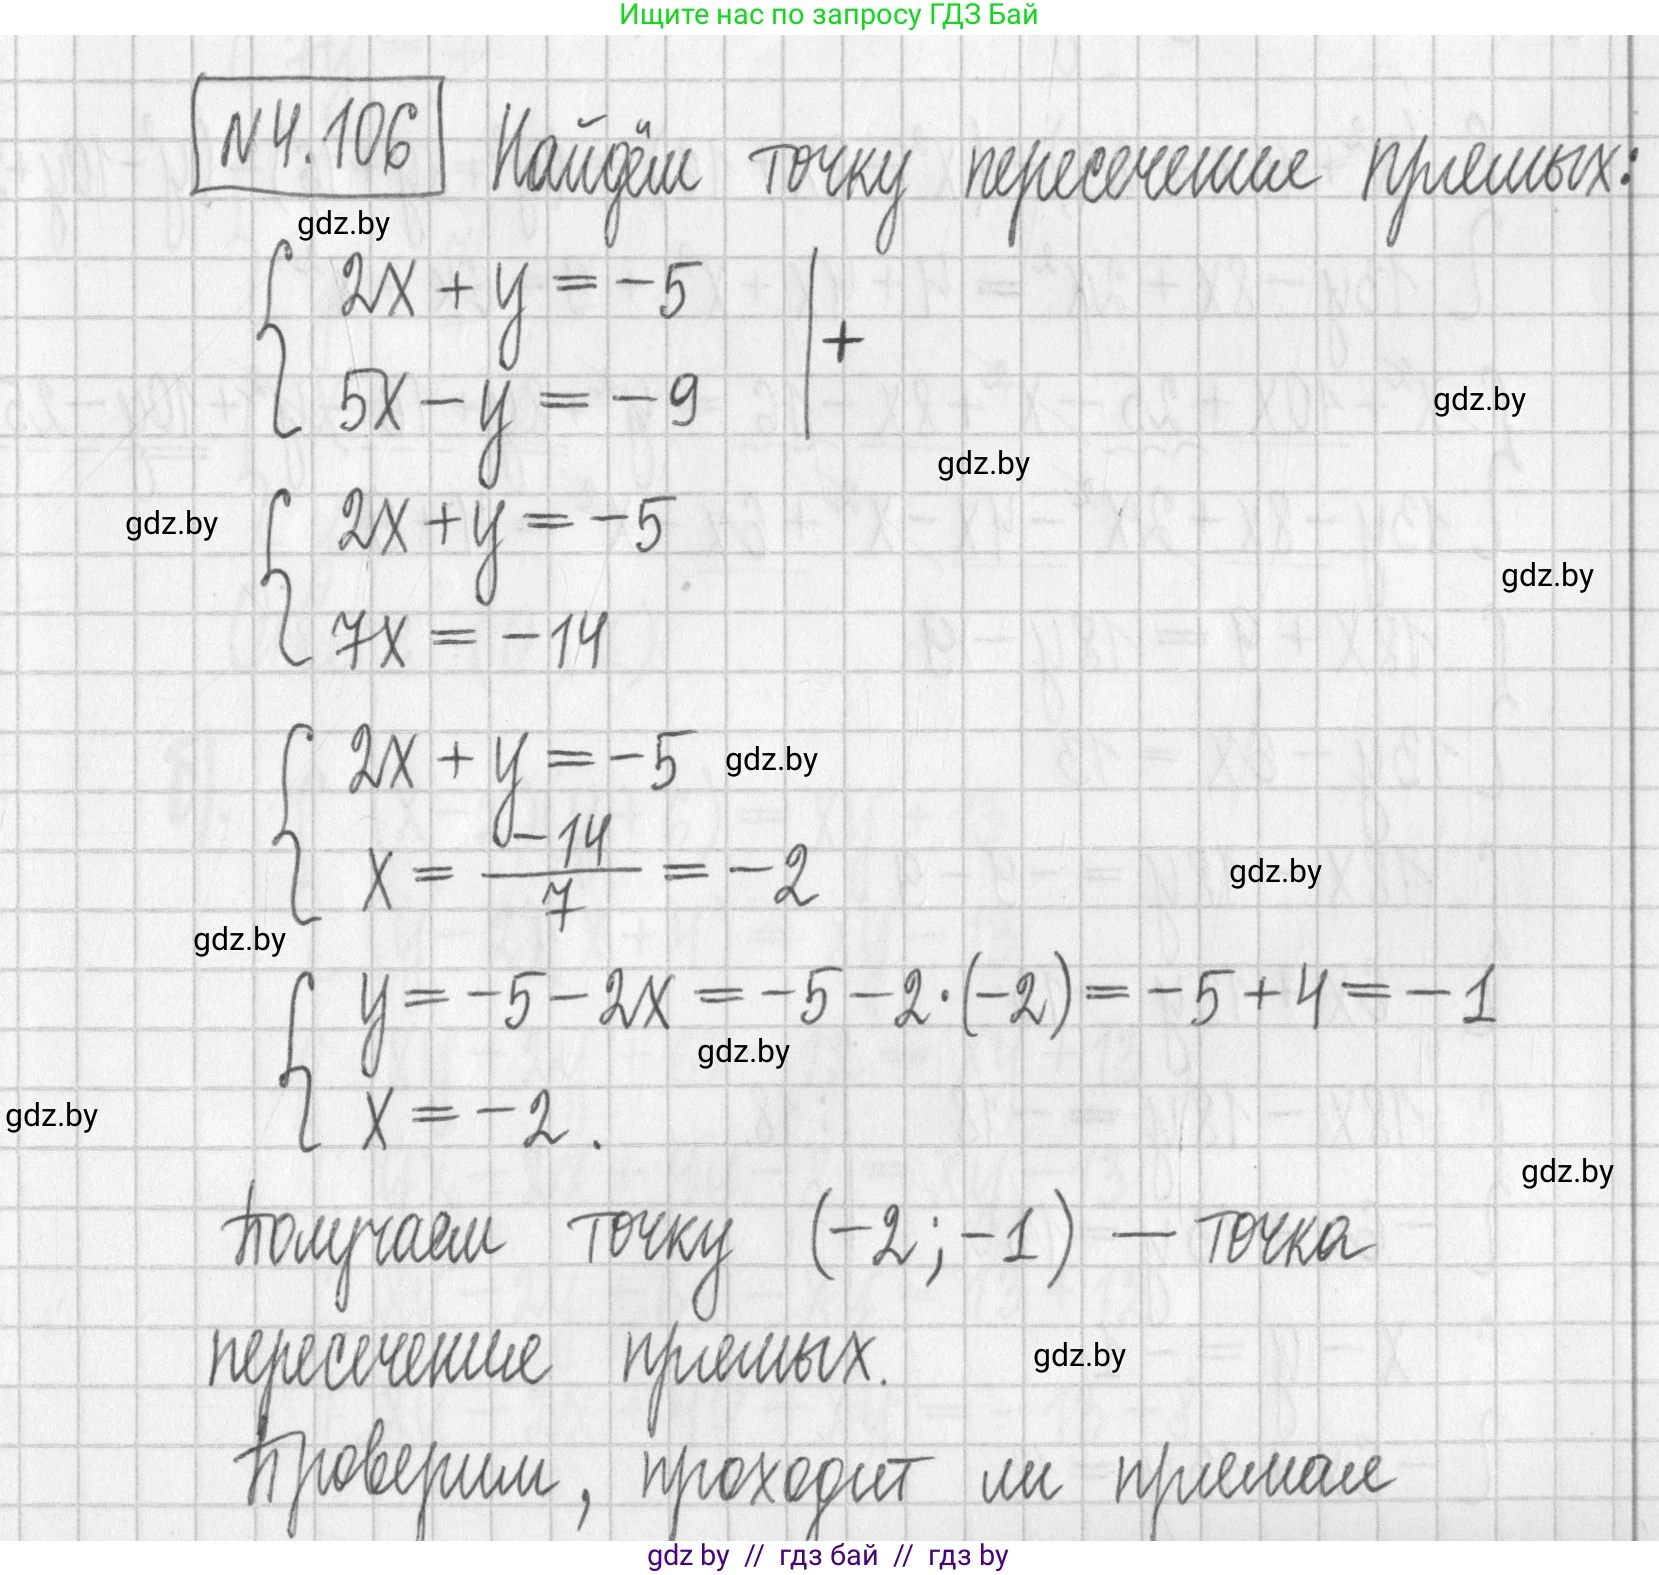 Ищите нас по запросу ГДЗ Бай
N4.106 Найдём точку пересечение прямых:
gdz.by
2x + y = -5 | +
5x - y = -9
gdz.by
gdz.by
gdz.by
2x + y = -5
gdz.by
7x = -14
2x + y = -5
gdz.by
x = -14/7 = -2
gdz.by
gdz.by
y = -5 - 2x = -5 - 2·(-2) = -5 + 4 = -1
gdz.by
x = -2.
gdz.by
gdz.by
Получаем точку (-2; -1) — точка
пересечение прямых.
gdz.by
Проверим, проходит ли прямая
gdz by // гдз бай // гдз by